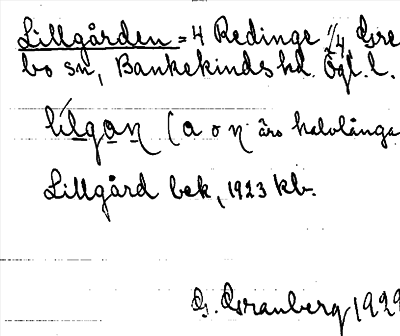 Lillgården = 4 Redinge 1/4, Gre
bo sn, Bankekinds hd. Ögl. l.
lílgan (a o n äro halvlånga
Lillgård bek, 1923 kb.
G. Granberg 1929